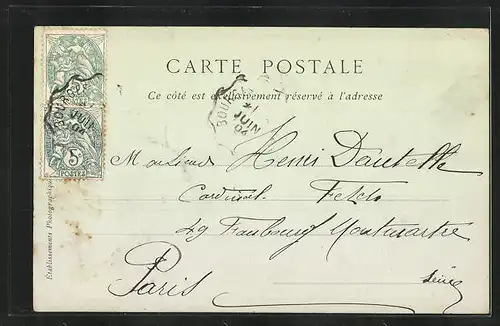 CARTE POSTALE
Ce côté est exclusivement réservé à l'adresse
JUIN
04
5
POSTES
JUIN
04
Monsieur Henri Dautelle
Cardinal Fesch
49 Faubourg Montmartre
Paris
Seine
Établissements Photographiques